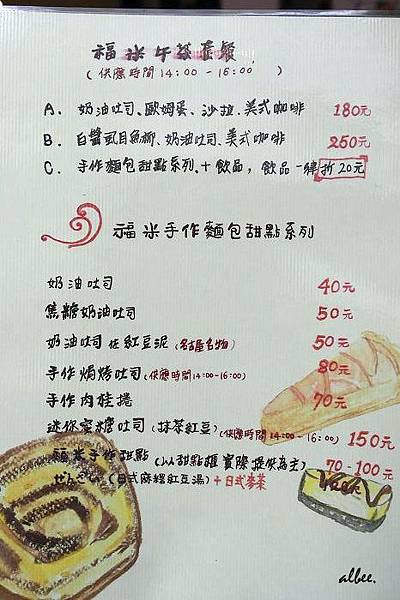 福米午茶套餐
(供應時間14:00-16:00)
A. 奶油吐司、歐姆蛋、沙拉、美式咖啡 180元
B. 白醬虱目魚粥、奶油吐司、美式咖啡 250元
C. 手作麵包甜點系列、+飲品,飲品一律折20元
福米手作麵包甜點系列
奶油吐司 40元
焦糖奶油吐司 50元
奶油吐司佐紅豆泥(名古屋名物) 50元
手作焗烤吐司(供應時間14:00-16:00) 80元
手作肉桂捲 70元
迷你蜜糖吐司(抹茶紅豆)(供應時間14:00-16:00) 150元
福米手作甜點(以甜點櫃實際提供為主) 70-100元
ぜんざい(日式麻糬紅豆湯)+日式麥茶
albee.